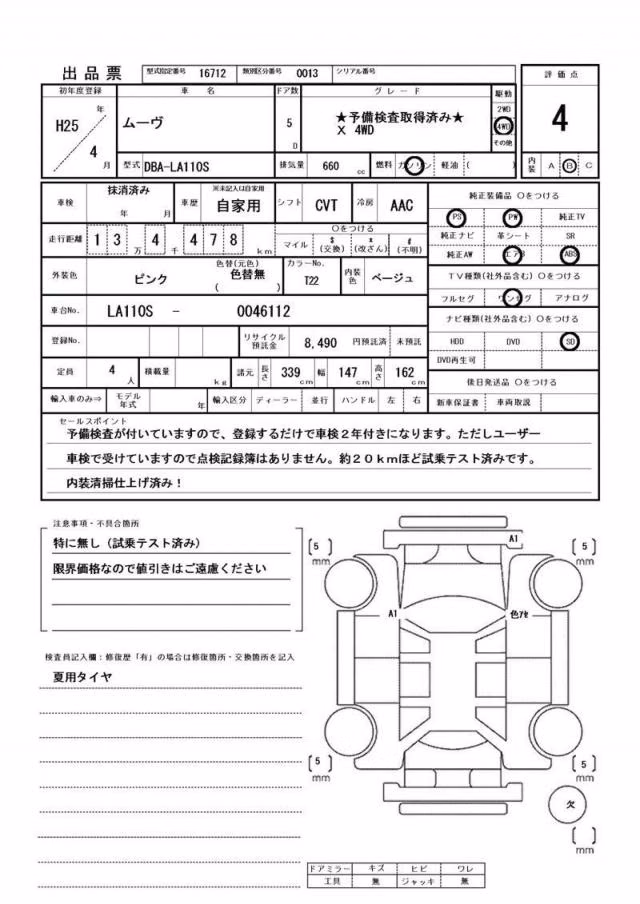 出品票 型式指定番号 16712 類別区分番号 0013 シリアル番号
評価点
4
内装 A B C
初年度登録 車名 ドア数 グレード 駆動
H25 年 4 月
ムーヴ
5 D
★予備検査取得済み★
X 4WD
2WD
4WD
その他
型式 DBA-LA110S 排気量 660 cc 燃料 ガソリン 軽油 ( )
車検 抹消済み 年 月 車歴 ※未記入は自家用 自家用 シフト CVT 冷房 AAC
走行距離 1 3 万 4 千 4 7 8 km
〇をつける
マイル $ (交換) * (改ざん) # (不明)
外装色 ピンク 色替(元色) 色替無 ( ) カラーNo. T22 内装色 ベージュ
車台No. LA110S - 0046112
登録No. リサイクル預託金 8,490 円預託済 未預託
定員 4 人 積載量 kg 諸元 長さ 339 cm 幅 147 cm 高さ 162 cm
輸入車のみ⇒ モデル年式 年 輸入区分 ディーラー 並行 ハンドル 左 右
純正装備品 〇をつける
PS PW 純正TV
純正ナビ 革シート SR
純正AW エアB ABS
TV種類(社外品含む) 〇をつける
フルセグ ワンセグ アナログ
ナビ種類(社外品含む) 〇をつける
HDD DVD SD
DVD再生可
後日発送品 〇をつける
新車保証書 車両取説
セールスポイント
予備検査が付いていますので、登録するだけで車検2年付きになります。ただしユーザー
車検で受けていますので点検記録簿はありません。約20kmほど試乗テスト済みです。
内装清掃仕上げ済み!
注意事項・不具合箇所
特に無し(試乗テスト済み)
限界価格なので値引きはご遠慮ください
検査員記入欄:修復歴「有」の場合は修復箇所・交換箇所を記入
夏用タイヤ
A1
[5] mm
[5] mm
A1
色アセ
[5] mm
[5] mm
欠
[ ] mm
ドアミラー キズ ヒビ ワレ
工具 無 ジャッキ 無